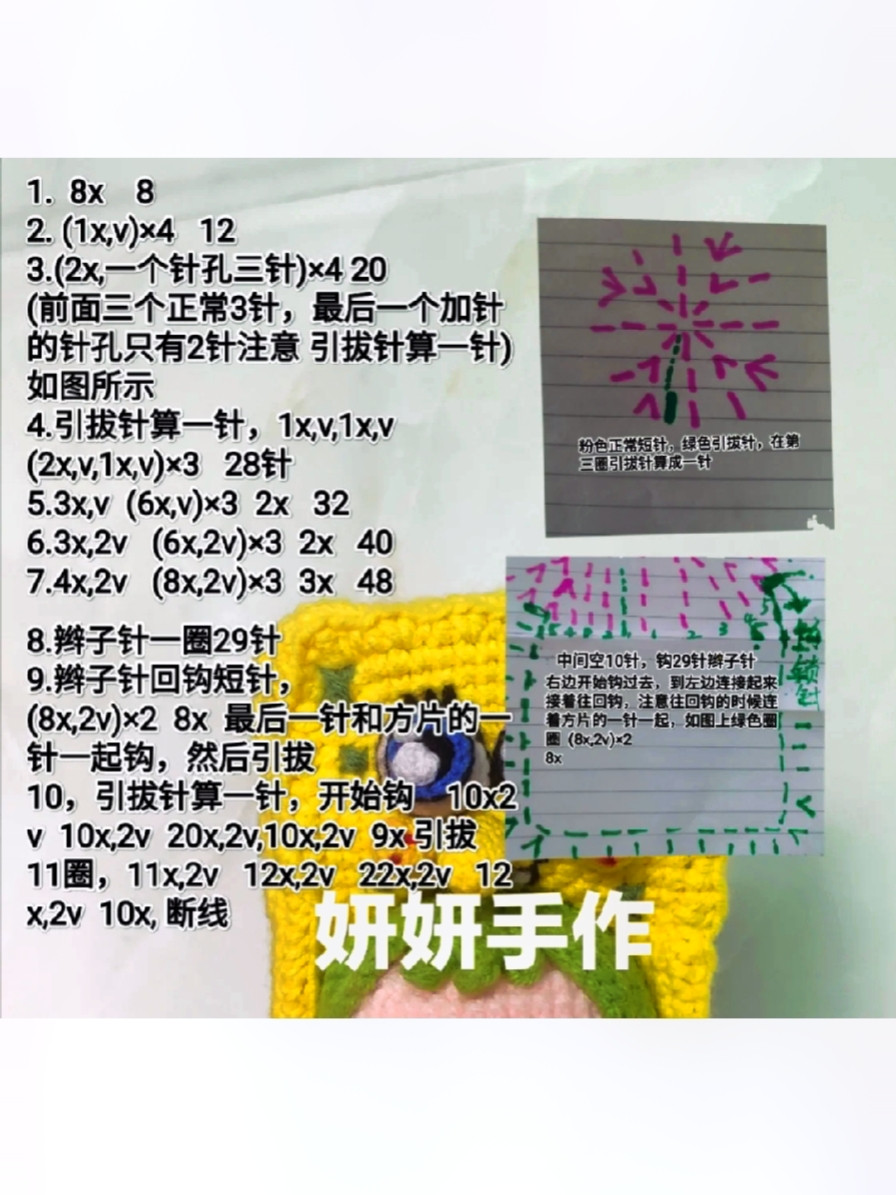 1. 8x 8
2. (1x,v)×4 12
3.(2x,一个针孔三针)×4 20
(前面三个正常3针，最后一个加针
的针孔只有2针注意 引拔针算一针)
如图所示
4.引拔针算一针，1x,v,1x,v
(2x,v,1x,v)×3 28针
5.3x,v (6x,v)×3 2x 32
6.3x,2v (6x,2v)×3 2x 40
7.4x,2v (8x,2v)×3 3x 48
8.辫子针一圈29针
9.辫子针回钩短针，
(8x,2v)×2 8x 最后一针和方片的一
针一起钩，然后引拔
10，引拔针算一针，开始钩 10x2
v 10x,2v 20x,2v,10x,2v 9x 引拔
11圈，11x,2v 12x,2v 22x,2v 12
x,2v 10x, 断线
粉色正常短针，绿色引拔针，在第
三圈引拔针算成一针
中间空10针，钩29针辫子针
右边开始钩过去，到左边连接起来
接着往回钩，注意往回钩的时候连
着方片的一针一起，如图上绿色圈
圈 (8x,2v)×2
8x
妍妍手作